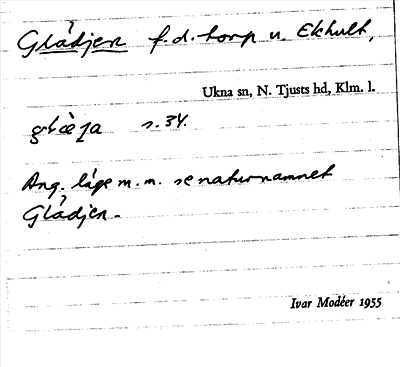 Glädjen f.d. torp u. Ekhult,
Ukna sn, N. Tjusts hd, Klm. l.
s. 34.
Ang. läge m.m. se naturnamnet
Glädjen.
Ivar Modéer 1955